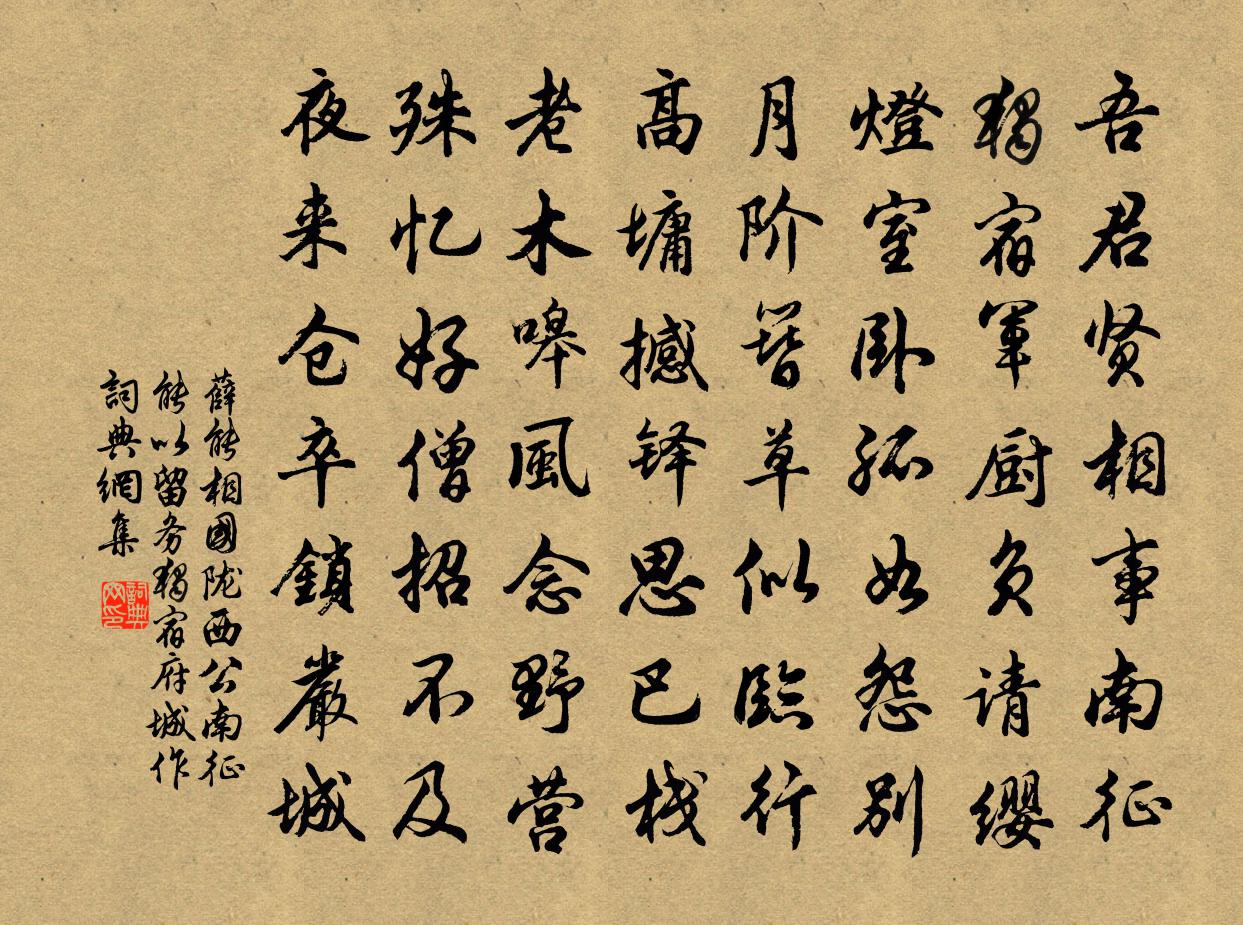 吾君贤相事南征
独宿军厨负请缨
燈室卧孤如怨别
月阶簪草似臨行
高墉撼铎思巴栈
老木嗥風念野营
殊忆好僧招不及
夜来仓卒鎖嚴城
薛能相國陇西公南征
能以留务独宿府城作
詞典網集
詞典网印